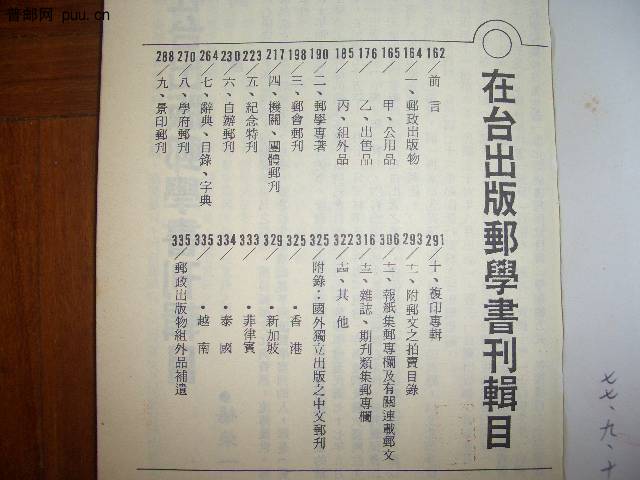 普邮网 puu.cn
在台出版郵學書刊輯目
162/前言
164/一、郵政出版物
165/甲、公用品
176/乙、出售品
185/丙、組外品
190/二、郵學專著
198/三、郵會郵刊
217/四、機關、團體郵刊
223/五、紀念特刊
230/六、自辦郵刊
264/七、辭典、目錄、字典
270/八、學府郵刊
288/九、景印郵刊
291/十、複印專輯
293/十一、附郵文之拍賣目錄
306/十二、報紙集郵專欄及有關連載郵文
316/十三、雜誌、期刊類集郵專欄
322/十四、其他
325/附錄：國外獨立出版之中文郵刊
325/•香港
329/•新加坡
333/•菲律賓
334/•泰國
335/•越南
335/郵政出版物組外品補遺
七七、九、十